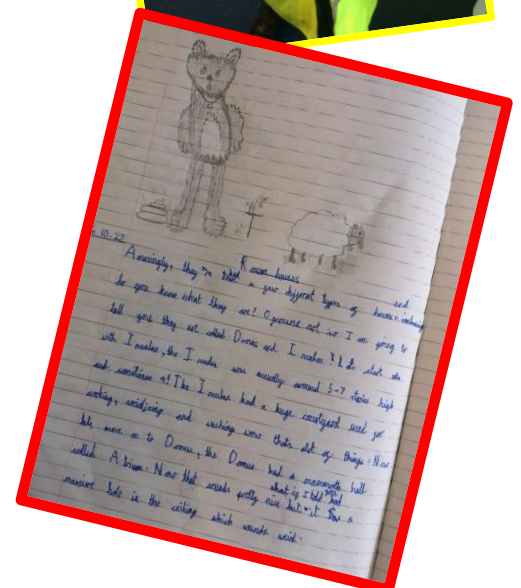 10.22
Roman houses
Amazingly, they had a few different types of houses and
do you know what they are? Ofcourse not so I am going to
tell you they are called Domus and Insulae! Lets start
with Insulae, the Insulae was usually around 5-7 stories high
and sometimes 9! The Insulae had a huge courtyard used for
cooking, and washing wow thats alot of things. Now
lets move on to Domus, the Domus had a mammoth hall
called Atrium. Now that sounds pretty nice but what if I told you it had a
massive hole in the ceiling which sounds weird.